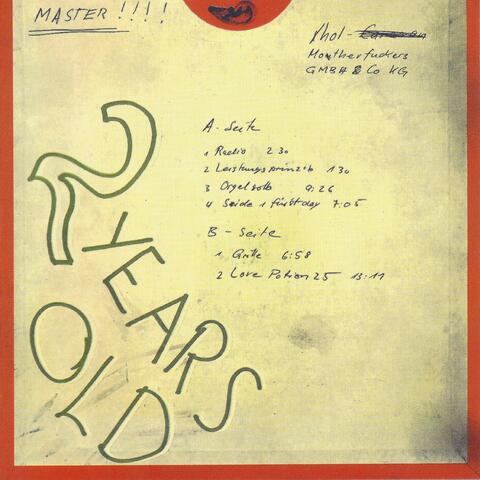 MASTER!!!!
Mol-
Montherfuckers
GMBH & Co KG
A-Seite
1 Radio 2 30
2 Leistungsprinzib 1 30
3 Orgelsolo 9:26
4 Seide 1 first day 7:05
B-Seite
1 6:58
2 Love Potion 25 13:11
2 YEARS OLD